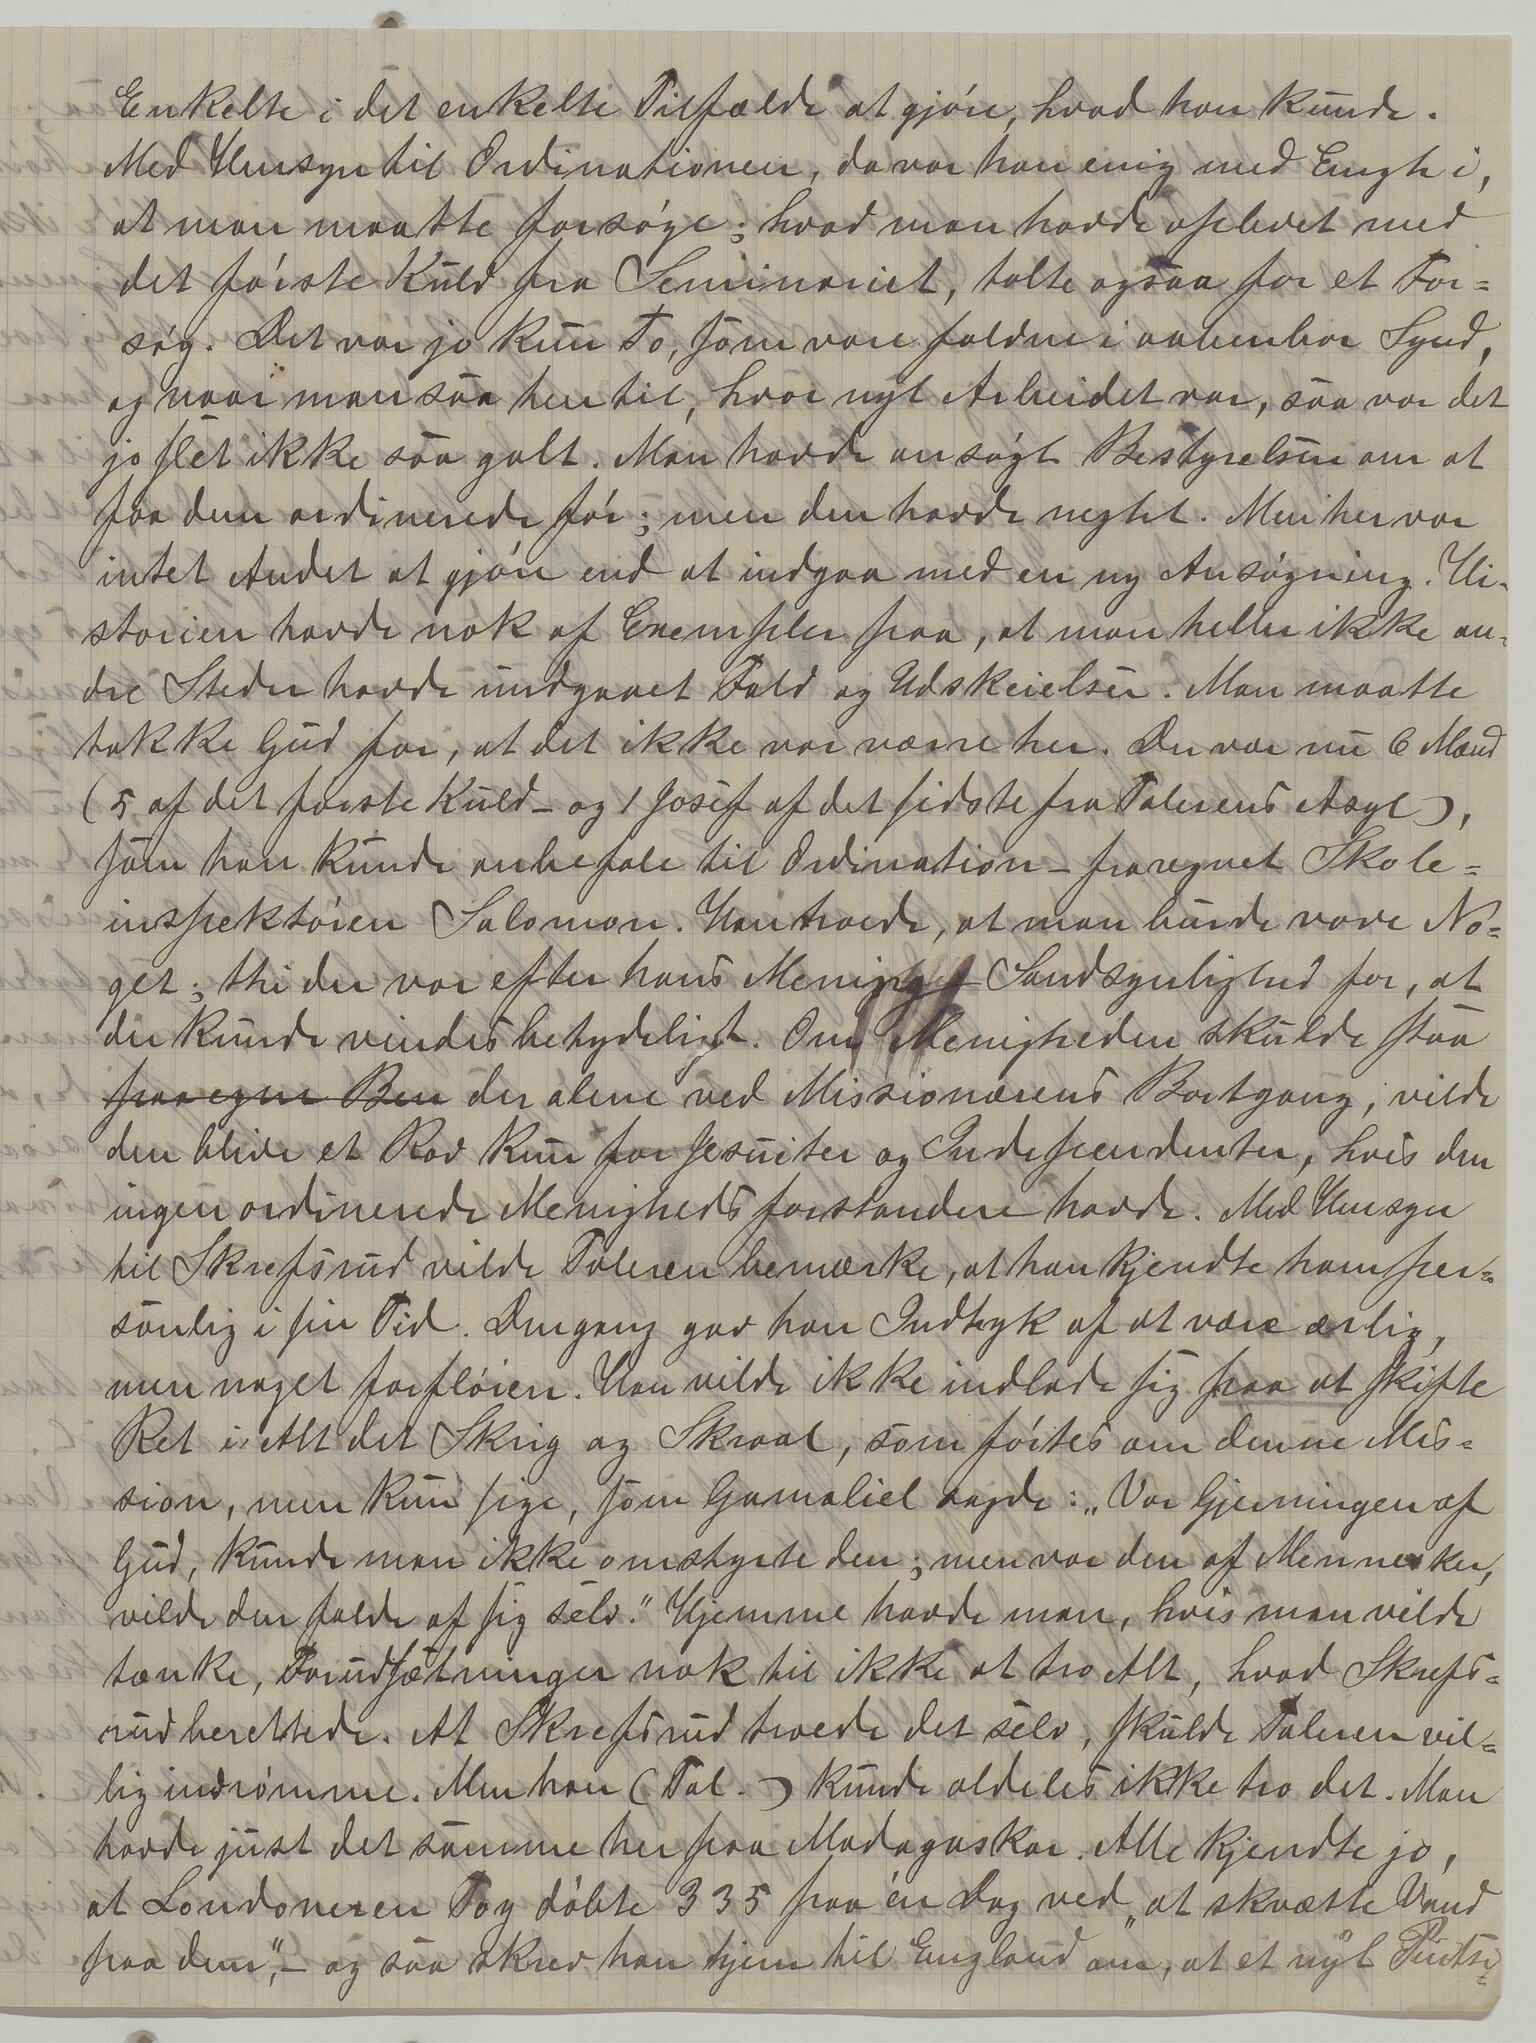 Enkelte i det enkelte Tilfælde at gjöre, hvad han kunde.
Med Hensyn til Ordinationen, da var han enig med Engh i,
at man maatte forsöge; hvad man havde oplevet med
det förste Kuld fra Seminariet, talte ogsaa for et For-
søg. Det var jo kun To, som vare faldne i aabenbar Synd,
og naar man saa hen til, hvor nyt Arbeidet var, saa var det
jo slet ikke saa galt. Man havde ansögt Bestyrelsen om at
faa dem ordinerede för; men den havde negtet. Men her var
intet Andet at gjöre end at indgaa med en ny Ansögning. Hi-
storien havde nok af Exempler paa, at man heller ikke an-
dre Steder havde undgaaet Fald og Udskeielser. Man maatte
takke Gud for, at det ikke var værre her. Der var nu 6 Mænd
(5 af det förste Kuld – og 1 Josef af det sidste fra Talerens Asyl),
som han kunde anbefale til Ordination – fraregnet Skole-
inspektören Salomon. Han troede, at man burde vove No-
get; thi der var efter hans Mening Sandsynlighed for, at
der kunde vindes betydeligt. Om Menigheden skulde staa
paa egne Ben der alene ved Missionærens Bortgang, vilde
den blive et Rov kun for Jesuiter og Independenter, hvis den
ingen ordinerede Menighedsforstandere havde. Med Hensyn
til Skrefsrud vilde Taleren bemærke, at han kjendte ham per-
sonlig i sin Tid. Dengang gav han Indtryk af at være ærlig,
men noget forflöien. Han vilde ikke indlade sig paa at skifte
Ret i Alt det Skrig og Skraal, som förtes om denne Mis-
sion, men kun sige, som Gamaliel sagde: „Var Gjerningen af
Gud, kunde man ikke omstyrte den; men var den af Mennesker,
vilde den falde af sig selv." Hjemme havde man, hvis man vilde
tænke, Forudsætninger nok til ikke at tro Alt, hvad Skrefs-
rud berettede. At Skrefsrud troede det selv, skulde Taleren vil-
lig indrömme. Men han (Tal.) kunde aldeles ikke tro det. Man
havde just det samme her paa Madagaskar. Alle kjendte jo,
at Londoneren Toy döbte 335 paa én Dag ved „at skvætte Vand
paa dem", – og saa skrev han hjem til England om, at et nyt Pintse-